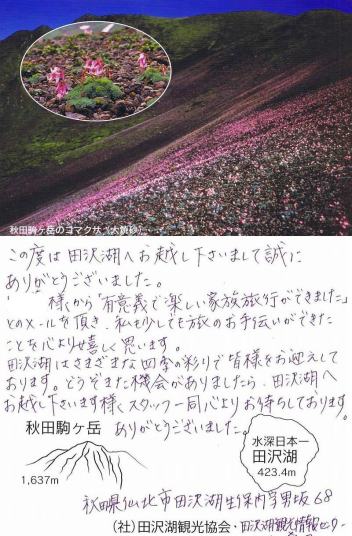 秋田駒ヶ岳のコマクサ(大焼砂)
この度は田沢湖へお越し下さいまして誠に
ありがとうございました。
様から「有意義で楽しい家族旅行ができました」
とのメールを頂き、私も少しでも旅のお手伝いができた
ことを心より嬉しく思います。
田沢湖はさまざまな四季の彩りで皆様をお迎えして
おります。どうぞまた機会がありましたら、田沢湖へ
お越し下さいます様、スタッフ一同心よりお待ちしております。
ありがとうございました。
秋田駒ヶ岳
1,637m
水深日本一
田沢湖
423.4m
秋田県仙北市田沢湖生保内字男坂68
(社)田沢湖観光協会・田沢湖観光情報センター